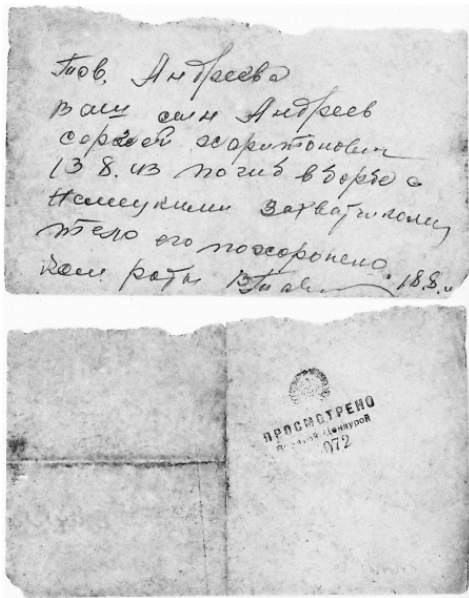 Тов. Андреева
Ваш сын Андреев
Сергей Харитонович
13 8.43 погиб в борьбе с
Немецкими захватчиками
тело его похоронено.
Ком роты 18.8.
ПРОСМОТРЕНО
Военной Цензурой
072